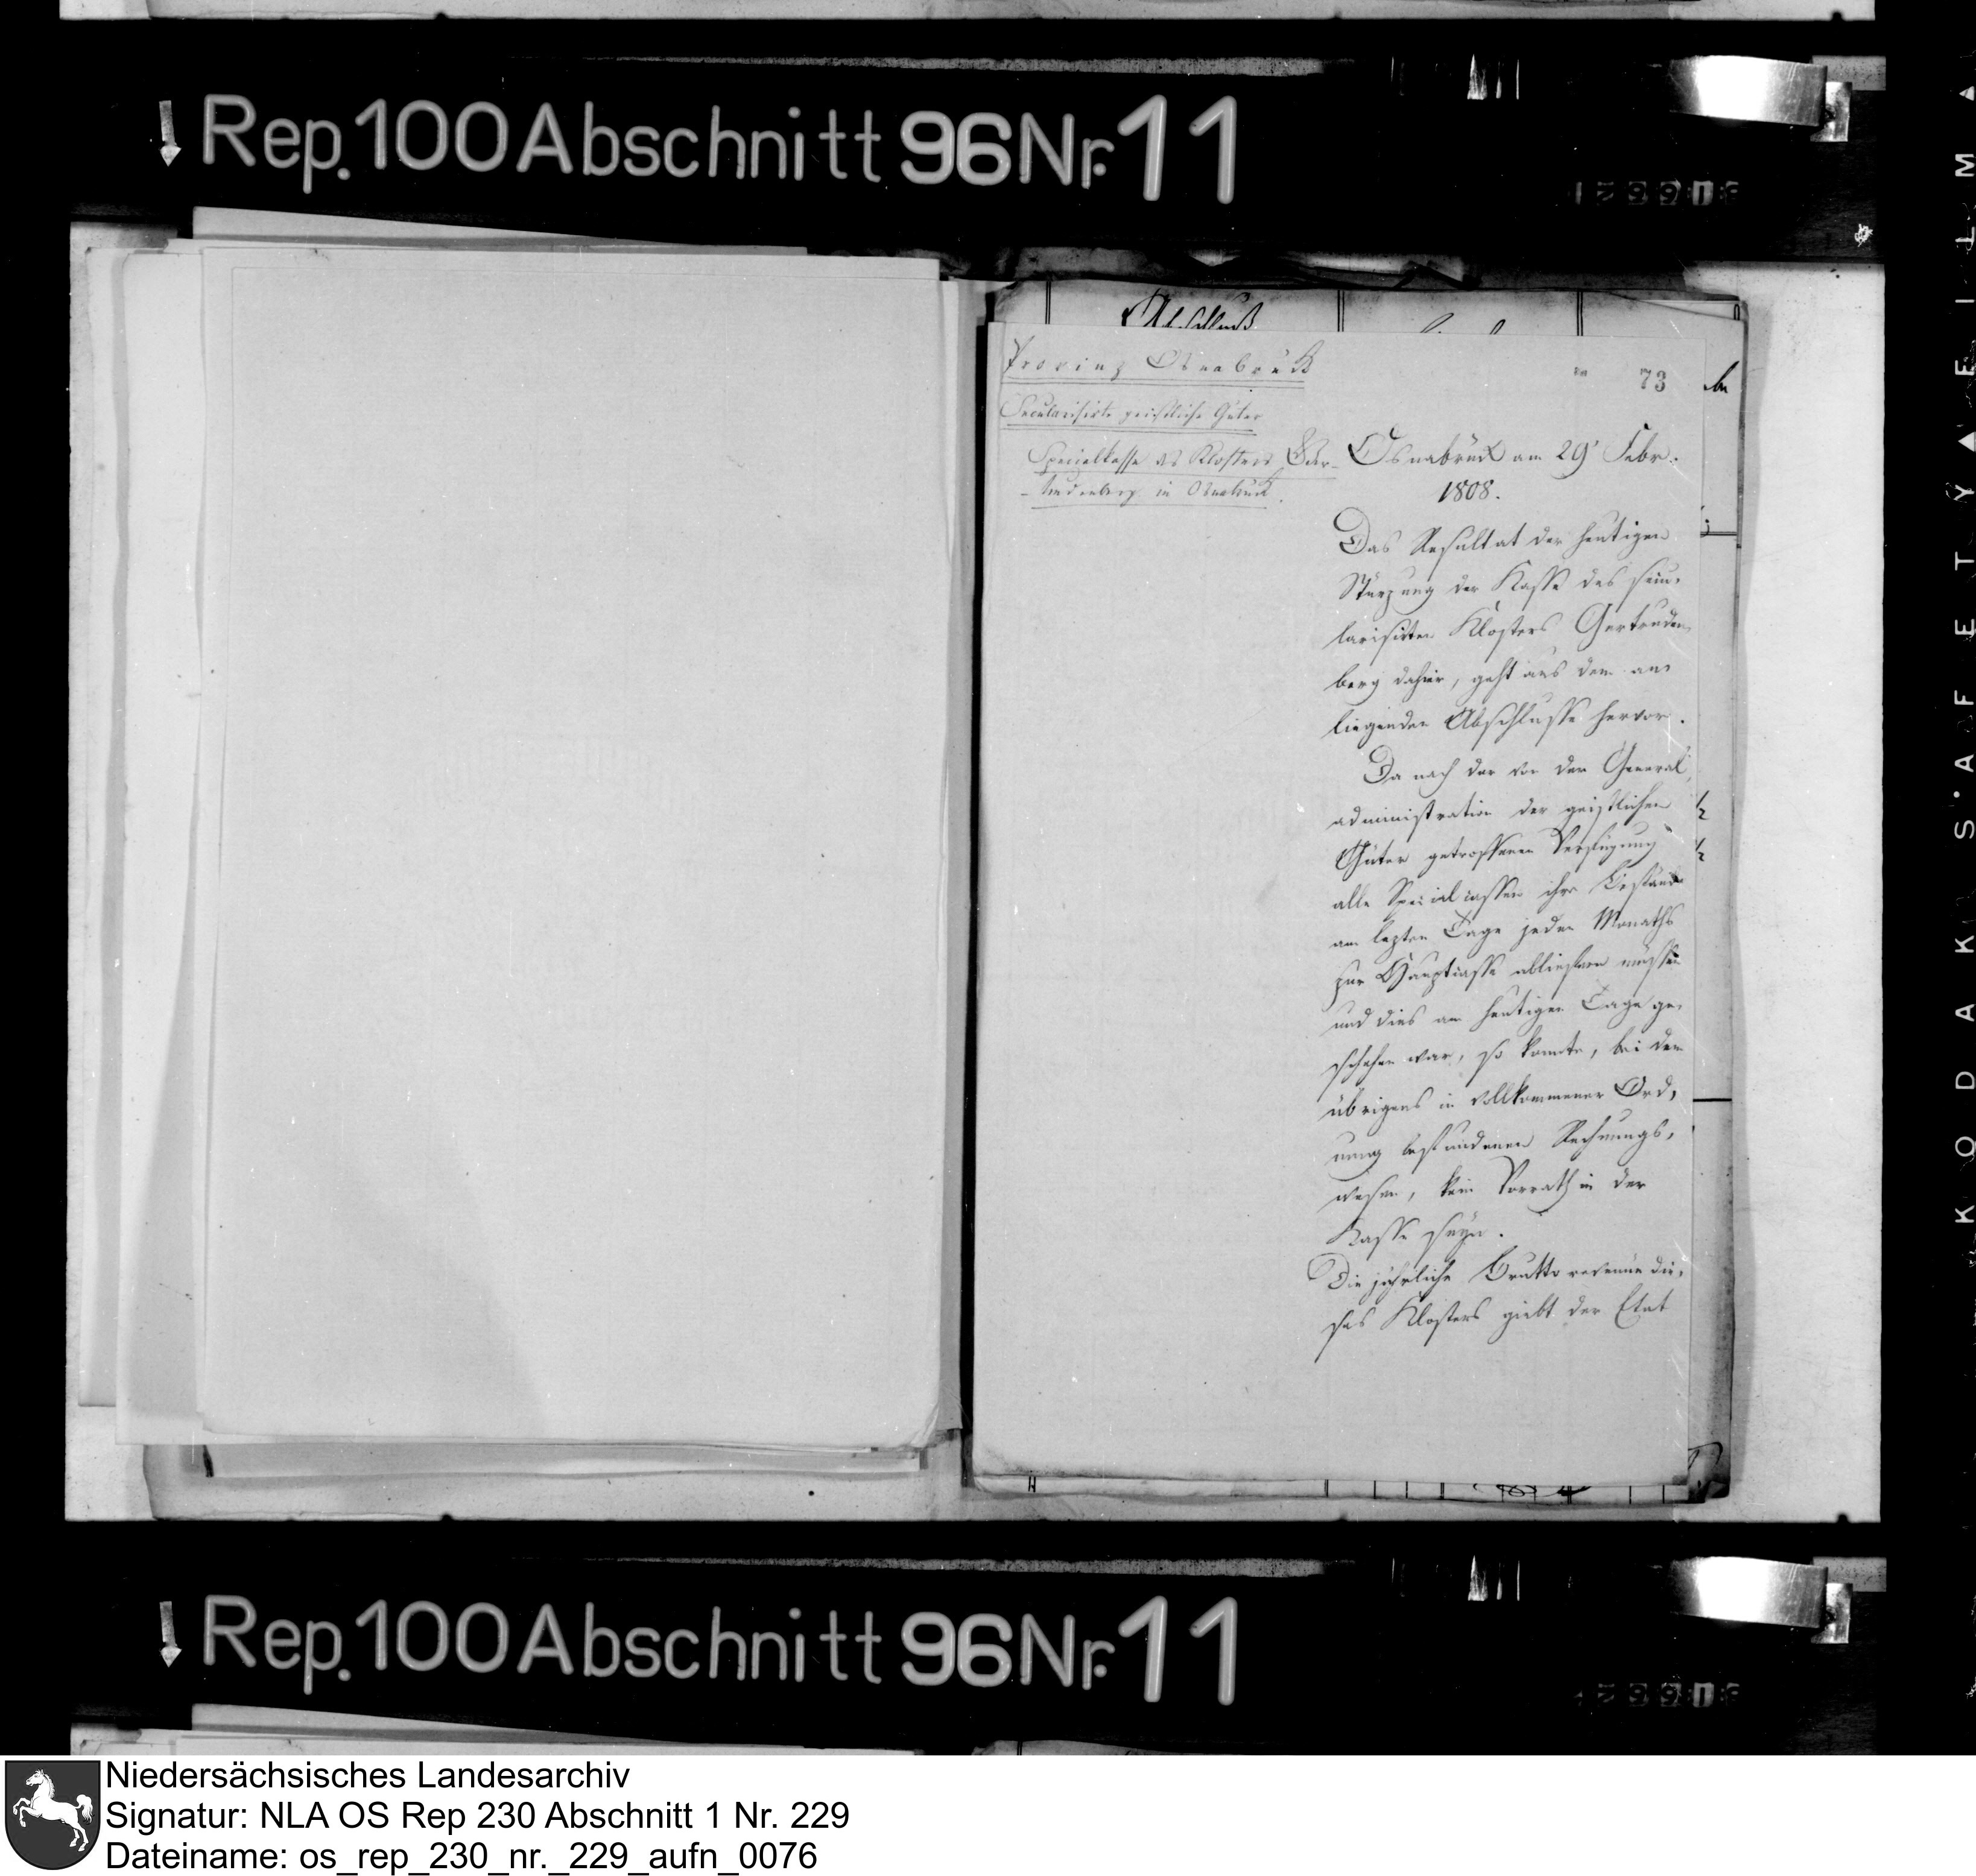 Rep. 100 Abschnitt 96 Nr. 11
Abschluß
Provinz Osnabrük
73
Secularisirte geistliche Güter
Specialkasse des Klosters Ger-
-trudenberg in Osnabrück.
Osnabrück am 29' Febr.
1808.
Das Resultat der heutigen
Stürzung der Kasse des secu,
larisirten Klosters Gertruden,
berg dahier, geht aus dem an,
liegenden Abschlusse hervor.
Da nach der von der General,
administration der geistlichen
Güter getroffenen Verfügung
alle Specialcassen ihre Bestände
am lezten Tage jeden Monaths
zur Hauptcasse abliefern müssen
und dies am heutigen Tage ge,
schehen war, so konnte, bei dem
übrigens in vollkommener Ord,
nung befundenen Rechnungs,
wesen, kein Vorrath in der
Kasse seyn.
Die jährliche Brutto revenüe die,
ses Klosters giebt der Etat
KODAK SAFETY FILM
Rep. 100 Abschnitt 96 Nr. 11
Niedersächsisches Landesarchiv
Signatur: NLA OS Rep 230 Abschnitt 1 Nr. 229
Dateiname: os_rep_230_nr._229_aufn_0076